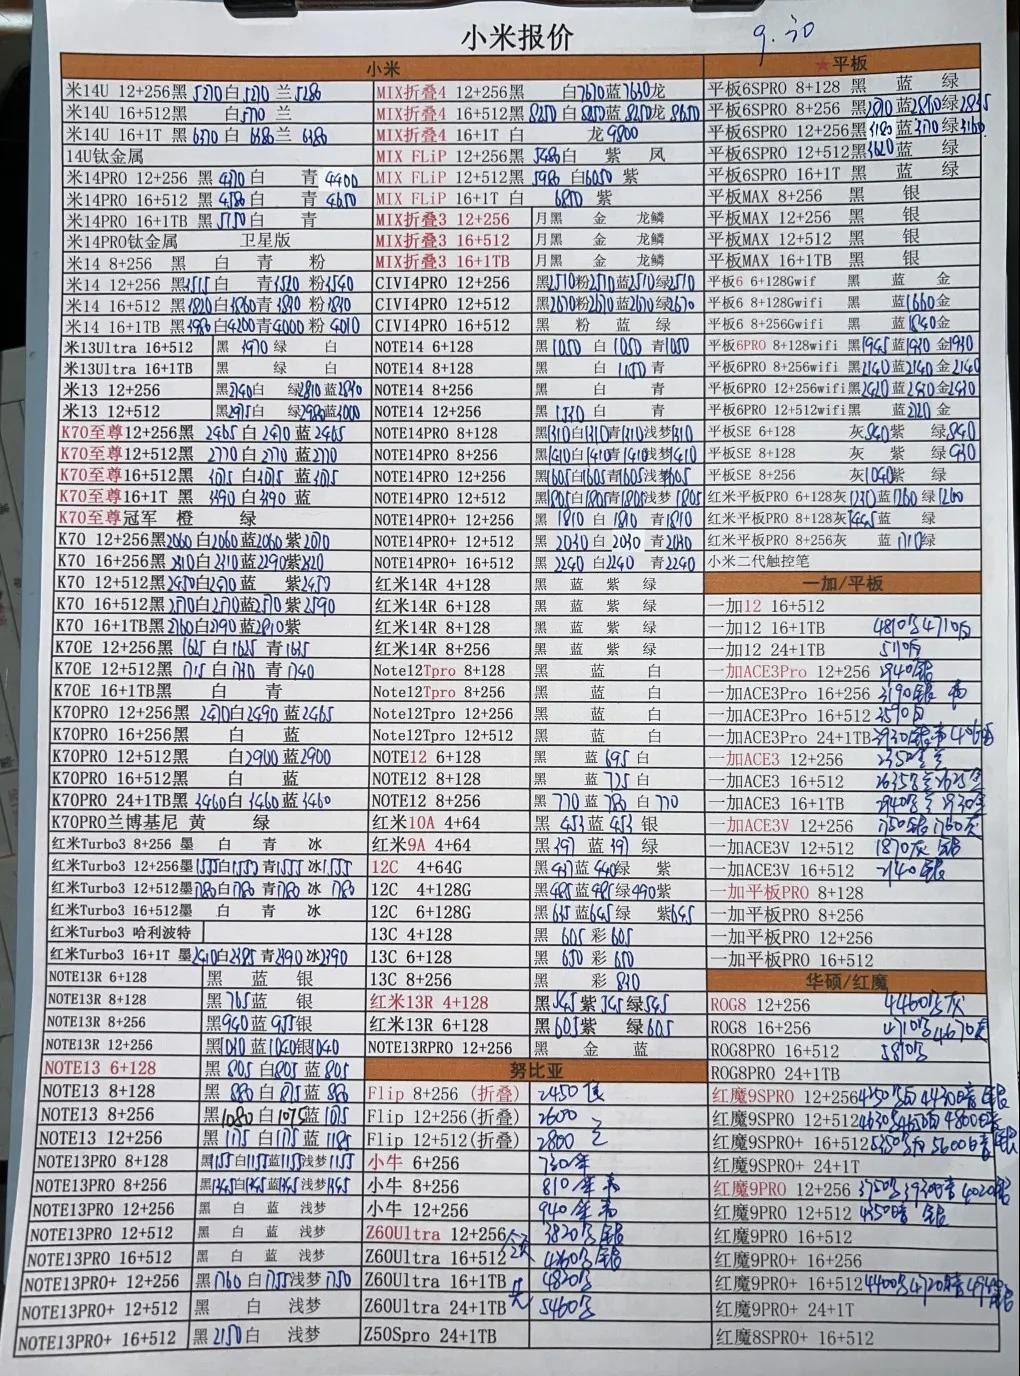 小米报价
小米
米14U 12+256黑 5270白5270 兰5280
米14U 16+512黑 白5770 兰
米14U 16+1T 黑 6370 白 6380 兰 6380
14U钛金属
米14PRO 12+256 黑 4370 白 青 4400
米14PRO 16+512 黑 4580 白 青 4650
米14PRO 16+1TB 黑 5150 白 青
米14PRO钛金属 卫星版
米14 8+256 黑 白 青 粉
米14 12+256 黑3515白 青3520 粉3540
米14 16+512 黑3820白3860青3820 粉3840
米14 16+1TB 黑3980白4200青4000 粉4010
米13Ultra 16+512 黑 3970 绿 白
米13Ultra 16+1TB 黑 绿 白
米13 12+256 黑2740白 绿2810 蓝2830
米13 12+512 黑2975白 绿2980蓝3000
K70至尊12+256黑 2465 白 2470 蓝 2465
K70至尊12+512黑 2770 白 2770 蓝 2770
K70至尊16+512黑 3075 白 3075 蓝 3075
K70至尊16+1T 黑 3390 白 3390 蓝
K70至尊冠军 橙 绿
K70 12+256黑2060 白2060蓝2060紫2070
K70 16+256黑2310白2310蓝2290紫2320
K70 12+512黑2450白2470 蓝 紫2450
K70 16+512黑2570白2570蓝2570紫2590
K70 16+1TB黑2760白2790蓝2810紫
K70E 12+256黑 1625 白 1625 青 1635
K70E 12+512黑 1715 白 1730 青 1740
K70E 16+1TB黑 白 青
K70PRO 12+256黑 2470白2490 蓝2465
K70PRO 16+256黑 白 蓝
K70PRO 12+512黑 白2900 蓝2900
K70PRO 16+512黑 白 蓝
K70PRO 24+1TB黑 3460白 3460蓝 3460
K70PRO兰博基尼 黄 绿
红米Turbo3 8+256 墨 白 青 冰
红米Turbo3 12+256墨1555白1555青1555 冰1555
红米Turbo3 12+512墨1780白1780 青1780 冰 1780
红米Turbo3 16+512墨 白 青 冰
红米Turbo3 哈利波特
红米Turbo3 16+1T 墨2410白2385青2390冰2390
NOTE13R 6+128 黑 蓝 银
NOTE13R 8+128 黑 765蓝 银
NOTE13R 8+256 黑940 蓝 955银
NOTE13R 12+256 黑1030 蓝1040银1040
NOTE13 6+128 黑 805 白805 蓝 805
NOTE13 8+128 黑 880 白 875 蓝 880
NOTE13 8+256 黑1080白 1075蓝 1075
NOTE13 12+256 黑 1175 白1175 蓝 1185
NOTE13PRO 8+128 黑1155白1155蓝1155浅梦1155
NOTE13PRO 8+256 黑1345白1345蓝1345 浅梦1345
NOTE13PRO 12+256 黑 白 蓝 浅梦
NOTE13PRO 12+512 黑 白 蓝 浅梦
NOTE13PRO 16+512 黑 白 蓝 浅梦
NOTE13PRO+ 12+256 黑1760 白1755浅梦1750
NOTE13PRO+ 12+512 黑 白 浅梦
NOTE13PRO+ 16+512 黑2150白 浅梦
MIX折叠4 12+256黑 白7670蓝7630龙
MIX折叠4 16+512黑8250 白 8250蓝8250龙 8650
MIX折叠4 16+1T 白 龙 9800
MIX FLiP 12+256黑 5480白 紫 凤
MIX FLiP 12+512黑 5980 白6050 紫
MIX FLiP 16+1T 白 6850 紫
MIX折叠3 12+256 月黑 金 龙鳞
MIX折叠3 16+512 月黑 金 龙鳞
MIX折叠3 16+1TB 月黑 金 龙鳞
CIVI4PRO 12+256 黑2510粉2510蓝2510绿2510
CIVI4PRO 12+512 黑2670粉2670蓝2670绿2670
CIVI4PRO 16+512 黑 粉 蓝 绿
NOTE14 6+128 黑1050 白 1050 青1050
NOTE14 8+128 黑 白 1150 青
NOTE14 8+256 黑 白 青
NOTE14 12+256 黑 1330 白 青
NOTE14PRO 8+128 黑1310白1310青1310浅梦1310
NOTE14PRO 8+256 黑1410白1410青1410浅梦1410
NOTE14PRO 12+256 黑1605白1605青1605浅梦1605
NOTE14PRO 12+512 黑1805白1805青1805浅梦1805
NOTE14PRO+ 12+256 黑 1810 白 1810 青1810
NOTE14PRO+ 12+512 黑 2030 白 2030 青2030
NOTE14PRO+ 16+512 黑 2240 白2240 青2240
红米14R 4+128 黑 蓝 紫 绿
红米14R 6+128 黑 蓝 紫 绿
红米14R 8+128 黑 蓝 紫 绿
红米14R 8+256 黑 蓝 紫 绿
Note12Tpro 8+128 黑 蓝 白
Note12Tpro 8+256 黑 蓝 白
Note12Tpro 12+256 黑 蓝 白
Note12Tpro 12+512 黑 蓝 白
NOTE12 6+128 黑 蓝 695 白
NOTE12 8+128 黑 蓝 725 白
NOTE12 8+256 黑 770 蓝 780 白 770
红米10A 4+64 黑 453 蓝 453 银
红米9A 4+64 黑 397 蓝 397 绿
12C 4+64G 黑437 蓝 440绿 紫
12C 4+128G 黑485 蓝485绿 490紫
12C 6+128G 黑 635 蓝645绿 紫645
13C 4+128 黑 605 彩 605
13C 6+128 黑 650 彩 650
13C 8+256 黑 彩 830
红米13R 4+128 黑545 紫 545 绿545
红米13R 6+128 黑605紫 绿605
NOTE13RPRO 12+256 黑 金 蓝
努比亚
Flip 8+256 (折叠) 2450
Flip 12+256(折叠) 2600
Flip 12+512(折叠) 2800
小牛 6+256 730
小牛 8+256 810
小牛 12+256 940
Z60Ultra 12+256 3820
Z60Ultra 16+512 4260
Z60Ultra 16+1TB 4820
Z60Ultra 24+1TB 5460
Z50Spro 24+1TB
★平板
平板6SPRO 8+128 黑 蓝 绿
平板6SPRO 8+256 黑2810蓝2850绿2835
平板6SPRO 12+256黑3180蓝3170绿3160
平板6SPRO 12+512黑3620蓝 绿
平板6SPRO 16+1T 黑 蓝 绿
平板MAX 8+256 黑 银
平板MAX 12+256 黑 银
平板MAX 12+512 黑 银
平板MAX 16+1TB 黑 银
平板6 6+128Gwif 黑 蓝 金
平板6 8+128Gwifi 黑 蓝1660金
平板6 8+256Gwifi 黑 蓝1840金
平板6PRO 8+128wifi 黑1945蓝1930 金1930
平板6PRO 8+256wifi 黑2140蓝2140 金2140
平板6PRO 12+256wifi 黑2420 蓝2430金2430
平板6PRO 12+512wifi黑 蓝 2720 金
平板SE 6+128 灰840紫 绿840
平板SE 8+128 灰 紫 绿930
平板SE 8+256 灰1040紫 绿
红米平板PRO 6+128灰1230蓝1260 绿1260
红米平板PRO 8+128灰1445蓝 绿
红米平板PRO 8+256灰 蓝 1710绿
小米二代触控笔
一加/平板
一加12 16+512
一加12 16+1TB 4810 4710
一加12 24+1TB 5110
一加ACE3Pro 12+256 2940银
一加ACE3Pro 16+256 3190银
一加ACE3Pro 16+512 3590
一加ACE3Pro 24+1TB
一加ACE3 12+256 2350
一加ACE3 16+512 2635 2625金
一加ACE3 16+1TB 2940 2930金
一加ACE3V 12+256 1750银 1760灰
一加ACE3V 12+512 1870灰 银
一加ACE3V 16+512 2140银
一加平板PRO 8+128
一加平板PRO 8+256
一加平板PRO 12+256
一加平板PRO 16+512
华硕/红魔
ROG8 12+256 4460 灰
ROG8 16+256 4710 4670
ROG8PRO 16+512 5810
ROG8PRO 24+1TB
红魔9SPRO 12+256 4350 4430 银
红魔9SPRO+ 12+512 4630 4650 4800
红魔9SPRO+ 16+512 5350 5600 银
红魔9SPRO+ 24+1T
红魔9PRO 12+256 3750 3930 4020银
红魔9PRO 12+512 4350 银
红魔9PRO 16+512
红魔9PRO+ 16+256
红魔9PRO+ 16+512 4400 4720
红魔9PRO+ 24+1T
红魔8SPRO+ 16+512